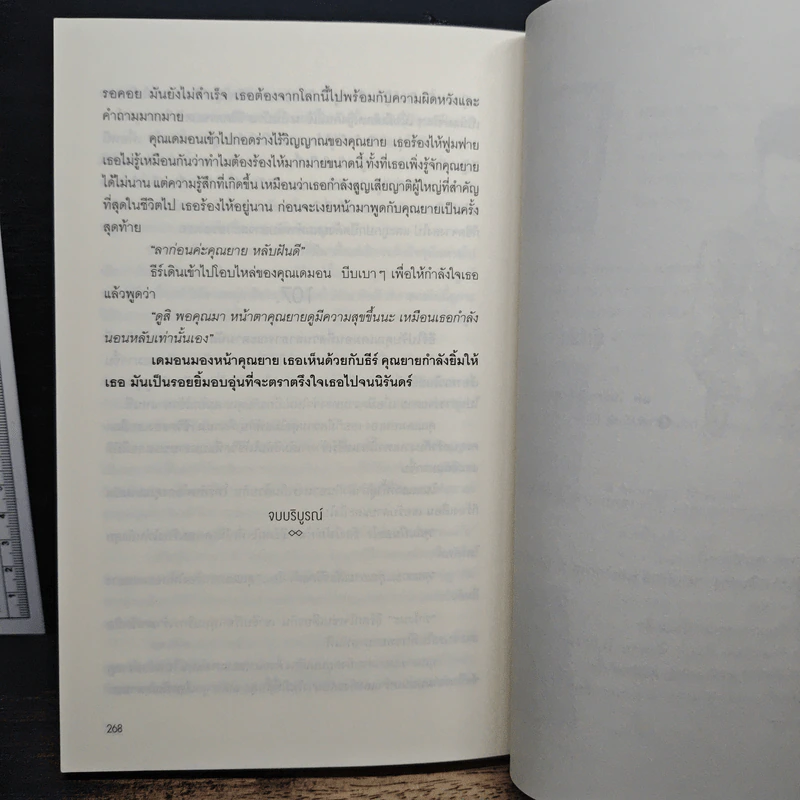 รอคอย มันยังไม่สำเร็จ เธอต้องจากโลกนี้ไปพร้อมกับความผิดหวังและ
คำถามมากมาย
คุณเดมอนเข้าไปกอดร่างไร้วิญญาณของคุณยาย เธอร้องไห้ฟูมฟาย
เธอไม่รู้เหมือนกันว่าทำไมต้องร้องไห้มากมายขนาดนี้ ทั้งที่เธอเพิ่งรู้จักคุณยาย
ได้ไม่นาน แต่ความรู้สึกที่เกิดขึ้น เหมือนว่าเธอกำลังสูญเสียญาติผู้ใหญ่ที่สำคัญ
ที่สุดในชีวิตไป เธอร้องไห้อยู่นาน ก่อนจะเงยหน้ามาพูดกับคุณยายเป็นครั้ง
สุดท้าย
“ลาก่อนค่ะคุณยาย หลับฝันดี”
ธีร์เดินเข้าไปโอบไหล่ของคุณเดมอน บีบเบาๆ เพื่อให้กำลังใจเธอ
แล้วพูดว่า
“ดูสิ พอคุณมา หน้าตาคุณยายดูมีความสุขขึ้นนะ เหมือนเธอกำลัง
นอนหลับเท่านั้นเอง”
เดมอนมองหน้าคุณยาย เธอเห็นด้วยกับธีร์ คุณยายกำลังยิ้มให้
เธอ มันเป็นรอยยิ้มอบอุ่นที่จะตราตรึงใจเธอไปจนนิรันดร์
จบบริบูรณ์
268
1
2
3
4
5